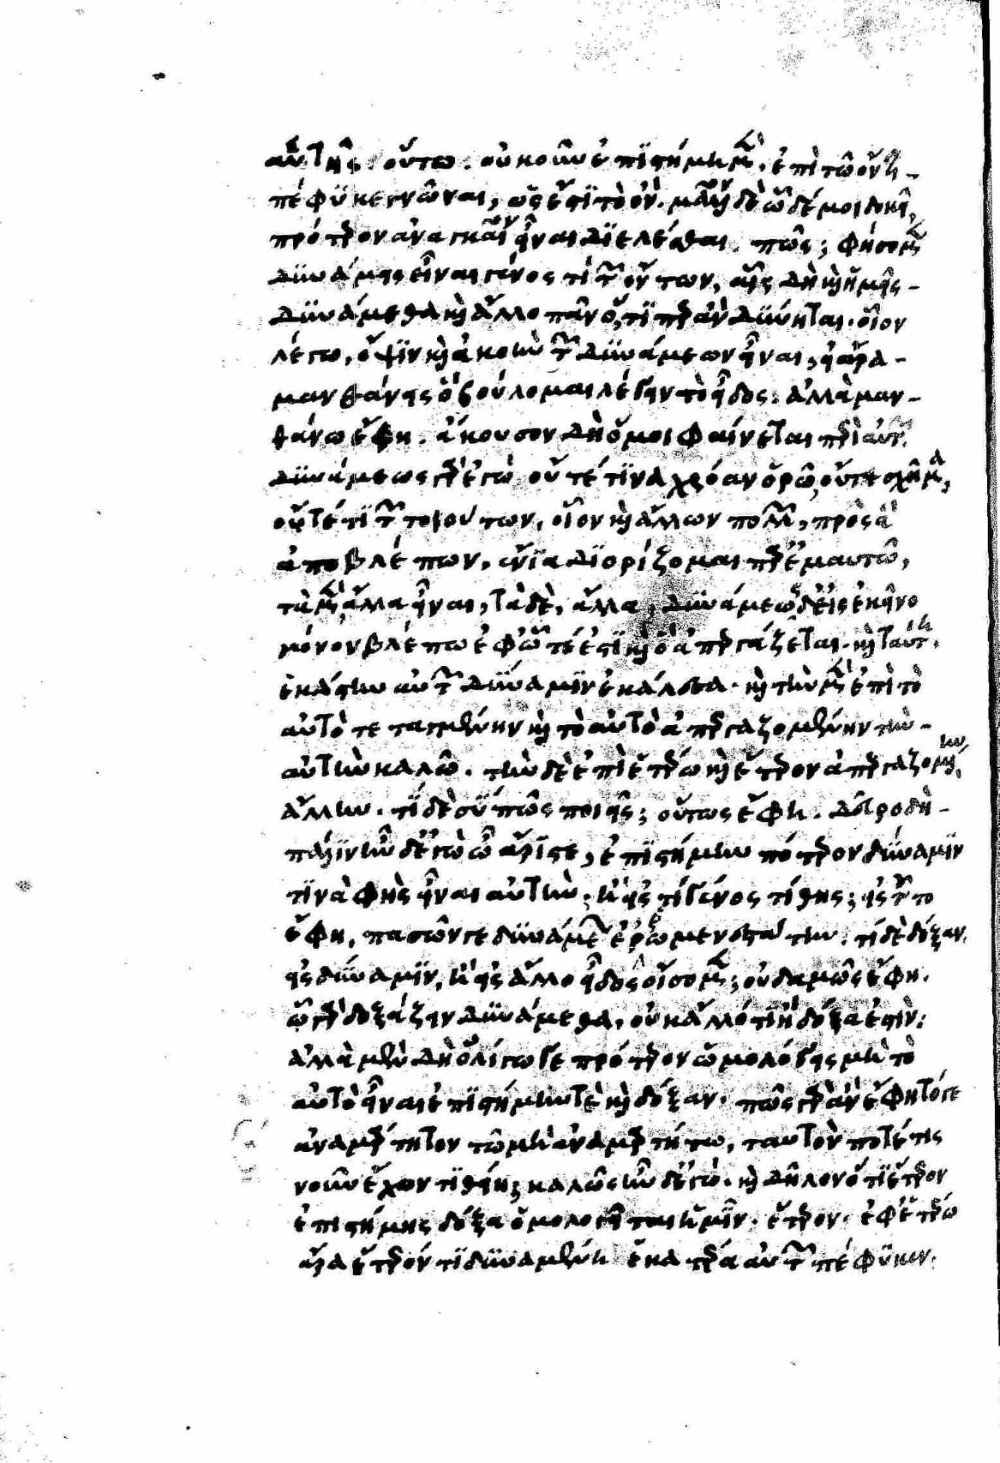 αὑτῆς. οὕτω. οὐκοῦν ἐπιστήμη μὲν ἐπὶ τῶ ὄντι
πέφυκε γνῶναι, ὡς ἔστι τὸ ὄν. μᾶλλον δὲ ὧδέ μοι δοκεῖ,
πρότερον ἀναγκαῖον εἶναι διελέσθαι. πῶς; φήσομεν
δυνάμεις εἶναι γένος τι τῶν ὄντων, αἷς δὴ καὶ ἡμεῖς
δυνάμεθα καὶ ἄλλο πᾶν ὅ, τι περ ἂν δύνηται. οἷον
λέγω, ὄψιν καὶ ἀκοὴν τῶν δυνάμεων εἶναι, εἰ ἄρα
μανθάνεις ὃ βούλομαι λέγειν τὸ εἶδος. ἀλλὰ μαν-
θάνω ἔφη. ἄκουσον δὴ ὅ μοι φαίνεται περὶ αὐτῶν.
δυνάμεως γὰρ ἐγὼ οὔτέ τινα χρόαν ὁρῶ, οὔτε σχῆμα,
οὔτέ τι τῶν τοιούτων, οἷον καὶ ἄλλων πολλῶν, πρὸς ἃ
ἀποβλέπων, ἔνια διορίζομαι παρ' ἐμαυτῶ,
τὰ μὲν ἄλλα εἶναι, τὰ δὲ, ἄλλα, δυνάμεως δ' εἰς ἐκεῖνο
μόνον βλέπω ἐφ' ὧ τέ ἐστι καὶ ὃ ἀπεργάζεται. καὶ ταύτη
ἑκάστην αὐτῶν δύναμιν ἐκάλεσα. καὶ τὴν μὲν ἐπὶ τὸ
αὐτὸ τεταγμένην καὶ τὸ αὐτὸ ἀπεργαζομένην τὴν
αὐτὴν καλῶ. τὴν δὲ ἐπὶ ἑτέρω καὶ ἕτερον ἀπεργαζομένην,
ἄλλην. τί δὲ σύ πῶς ποιεῖς; οὕτως ἔφη. δεῦρο δὴ
πάλιν ἦν δ' ἐγὼ ὦ ἄριστε, ἐπιστήμην πότερον δύναμιν
τινὰ φῂς εἶναι αὐτὴν; ἢ εἰς τί γένος τίθης; εἰς τοῦτο
ἔφη, πασῶν γε δυνάμεων ἐρρωμενεστάτην. τί δὲ δόξαν,
εἰς δύναμιν, ἢ εἰς ἄλλο εἶδος οἴσομεν; οὐδαμῶς ἔφη.
ὧ γὰρ δοξάζειν δυνάμεθα, οὐκ ἄλλό τι ἢ δόξα ἐστὶν;
ἀλλὰ μὲν δὴ ὀλίγω γε πρότερον ὡμολόγεις μὴ τὸ
αὐτὸ εἶναι ἐπιστήμην τὲ καὶ δόξαν. πῶς γὰρ ἂν ἔφη τό γε
ἀναμάρτητον τῶ μὴ ἀναμαρτήτω, ταυτὸν ποτέ τις
νοῦν ἔχων τιθείη; καλῶς ἦν δ' ἐγὼ. καὶ δῆλον ὅτι ἕτερον
ἐπιστήμης δόξα ὁμολογεῖται ἡμῖν. ἕτερον. ἐφ' ἑτέρω
ἄρα ἕτερόν τι δυναμένη ἑκατέρα αὐτῶν πέφυκεν.